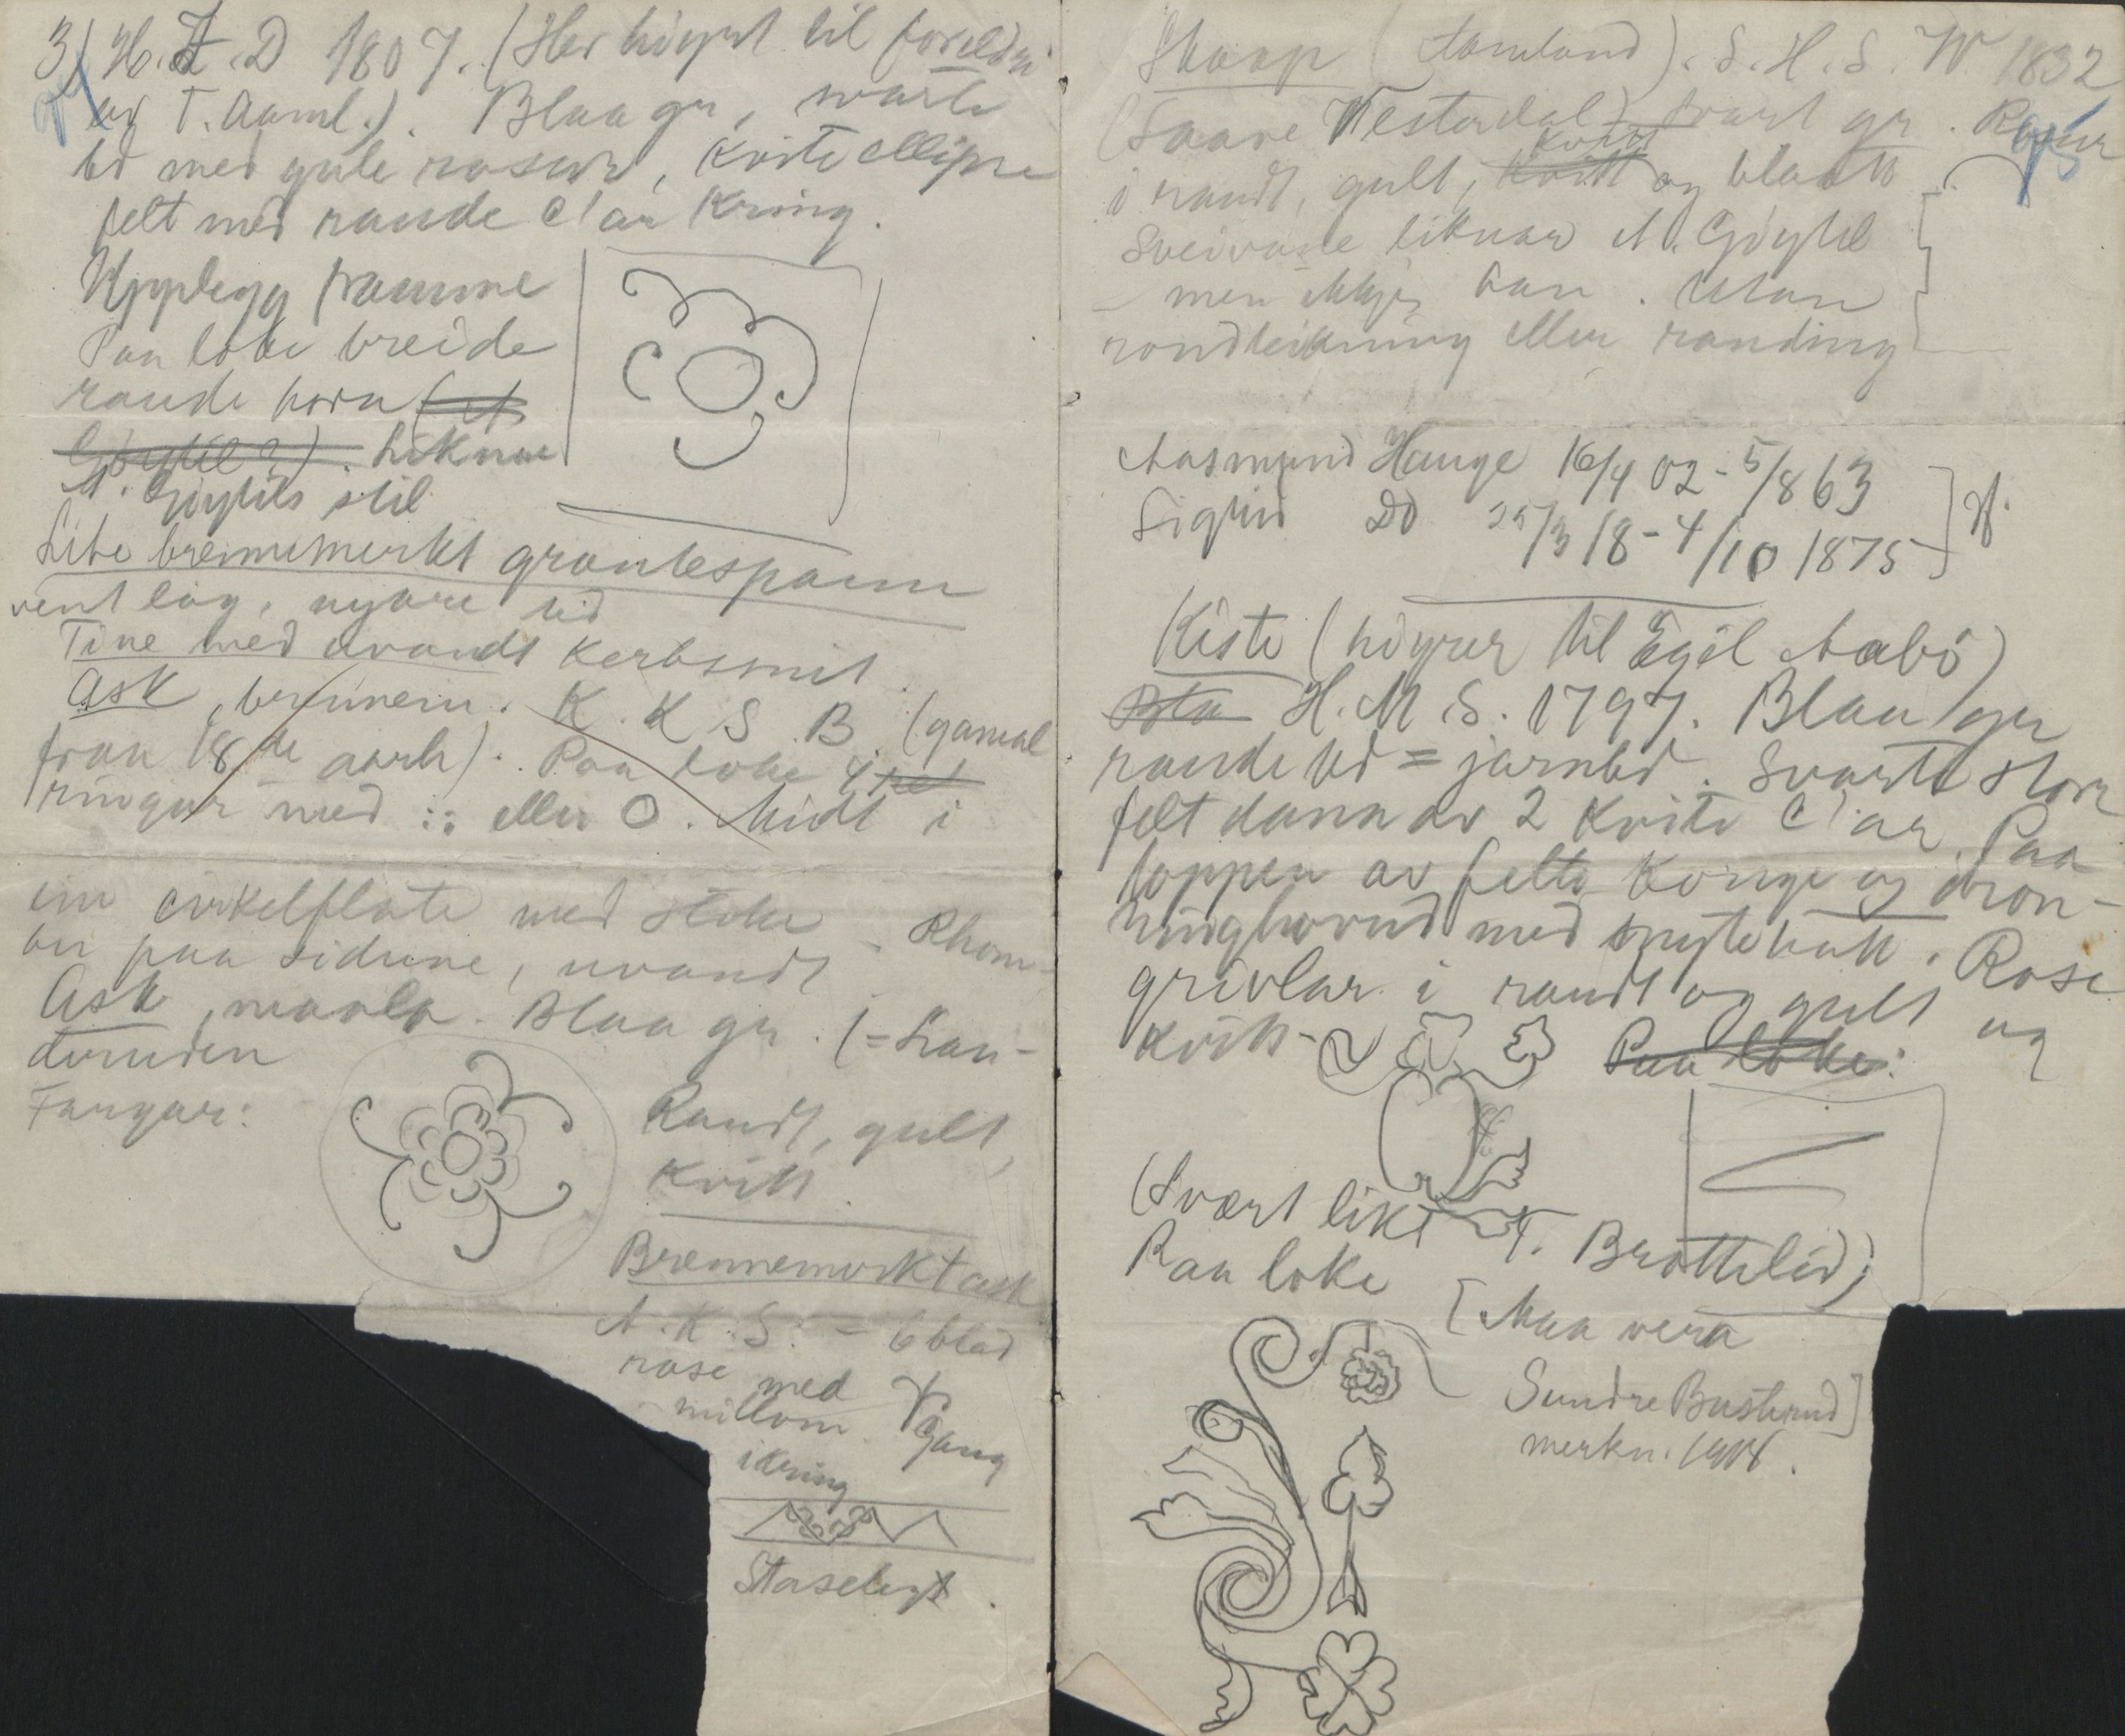 3) H. T. D 1807. (Her høyrt til foreldri
av T. Aaml.). Blaa gr, svarte
bd med gule rosur, kvite ellipse
felt med raude C'ar kring.
Upplegg framme
Paa loke breide
raude horn (et
Gøytil?). Liknar
A. Gøytils stil
Lite brennemerkt grautespann
vent lag, nyare tid
Tine med uvandt Kerbsnit.
Ask, brennem. K. K S. B. (gamal
fraa 18de aarh). Paa loke 4
ringar med :: eller O. Midt i
ein cirkelflate med stoke - Rhom-
bu paa sidune, uvandt
Ask, maala. Blaa gr. (= Lan-
druden
Fargar:
Raudt, gult,
kvitt.
Brennemerkt ask
A. K. S. - 6 blad
rose med
millom gang
ikring
Staselegt.
Skaap (Aamland). S. H. S. W. 1832
(Saave Vesterdal) svart gr. Rosur
i raudt, gult, kvitt kvitt og blaatt
Sveivane liknar A. Gøytil
- men ikkje han. Utan
rondteikning eller randing
Aasmund Hauge 16/4 02 - 5/8 63
Sigrid Do 25/3 18 - 4/10 1875 H.
Kiste (høyrer til Egil Aabø)
Bla H. M. S. 1797. Blaa gr
raude bd = jarnbd. Svarte store
felt danna av 2 kvite C'ar. Paa
toppen av felte konge og dron-
ninghovud med snytehatt. Rose
grivlar i raudt og gult og
kvitt - Paa loke:
(Svært likt T. Brottelid)
Paa loke
[Maa vera
Sundre Busterud]
merkn. 1918.